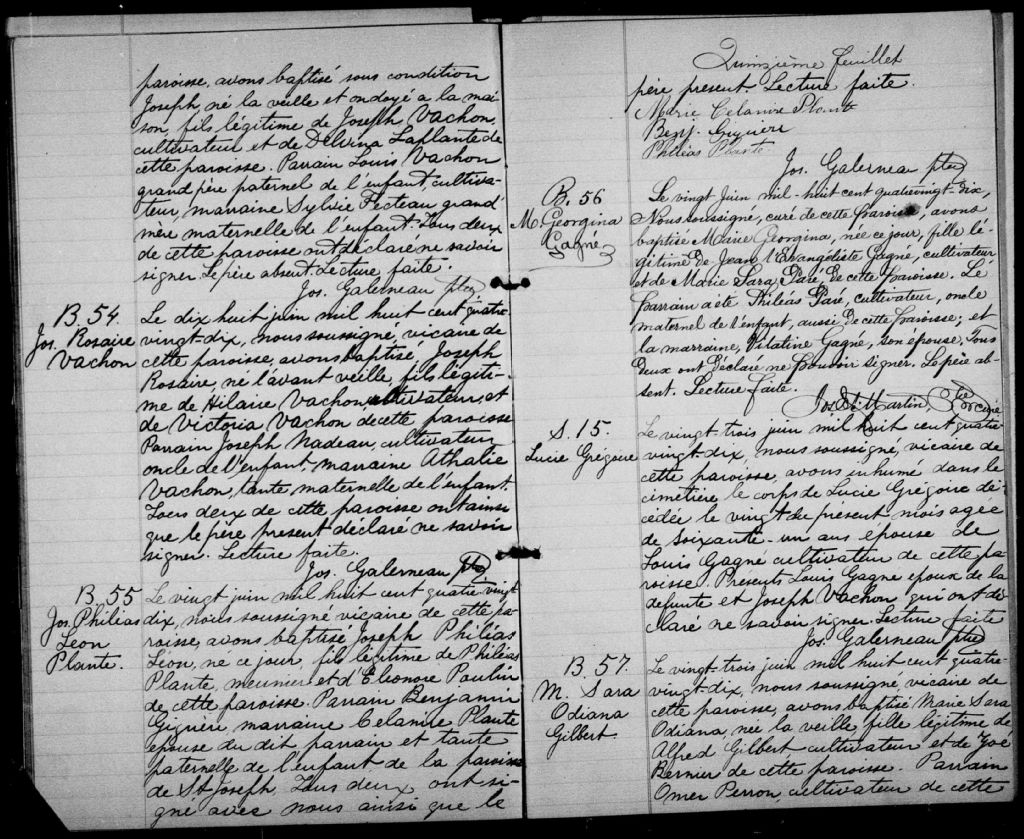 paroisse, avons baptisé sous condition
Joseph, né la veille et ondoyé a la mai
son, fils légitime de Joseph Vachon,
cultivateur et de Delvina Laplante de
cette paroisse. Parrain Louis Vachon
grand père paternel de l'enfant, cultiva-
teur, marraine Sylvie Fecteau grand
mère maternelle de l'enfant. Tous deux
de cette paroisse ont déclaré ne savoir
signer. Le père absent. Lecture faite.
Jos. Galerneau ptre
B 54.
Jos. Rosaire
Vachon
Le dix huit juin mil huit cent quatre
vingt-dix, nous soussigné, vicaire de
cette paroisse, avons baptisé, Joseph
Rosaire, né l'avant veille, fils légiti-
me de Hilaire Vachon, cultivateur, et
de Victoria Vachon de cette paroisse
Parrain Joseph Nadeau, cultivateur
oncle de l'enfant, marraine Athalie
Vachon, tante maternelle de l'enfant.
Tous deux de cette paroisse ont ainsi
que le père present déclaré ne savoir
signer. Lecture faite.
Jos. Galerneau ptre
B 55
Jos. Philias
Léon
Plante.
Le vingt juin mil huit cent quatre vingt
dix, nous soussigné vicaire de cette pa-
roisse, avons baptisé Joseph Philias
Léon, né ce jour, fils légitime de Philias
Plante, meunier et d'Eleonore Poulin
de cette paroisse. Parrain Benjamin
Giguère marraine Celanire Plante
epouse du dit parrain et tante
paternelle de l'enfant de la paroisse
de St Joseph. Tous deux ont si-
gné avec nous ainsi que le
Quinzième feuillet
père present. Lecture faite.
Marie Celanire Plante
Benj. Giguère
Philéas Plante
Jos. Galerneau ptre
B. 56
M. Georgina
Gagné
Le vingt Juin mil-huit cent quatrevingt-dix,
Nous soussigné, curé de cette paroisse, avons
baptisé Marie Georgina, née ce jour, fille lé-
gitime de Jean l'Evangeliste Gagné, cultivateur
et de Marie Sara Paré de cette paroisse. Le
parrain a été Philéas Paré, cultivateur, oncle
maternel de l'enfant, aussi de cette paroisse; et
la marraine, Vitatine Gagné, son épouse. Tous
deux ont déclaré ne pouvoir signer. Le père ab-
sent. Lecture faite.
Martin, Ptre curé
S. 15.
Lucie Grégoire
Le vingt-trois juin mil huit cent quatre
vingt-dix, nous soussigné, vicaire de
cette paroisse, avons inhumé dans le
cimetière le corps de Lucie Grégoire dé-
cédée le vingt du present mois agee
de soixante-un ans épouse de
Louis Gagné cultivateur de cette pa-
roisse. Présents Louis Gagne epoux de la
defunte et Joseph Vachon qui ont dé-
claré ne savoir signer. Lecture faite
Jos. Galerneau ptre
B 57.
M. Sara
Odiana
Gilbert.
Le vingt-trois juin mil huit cent quatre-
vingt-dix, nous soussigné, vicaire de
cette paroisse, avons baptisé Marie Sara
Odiana, née la veille, fille légitime de
Alfred Gilbert cultivateur et de Zoé
Bernier de cette paroisse. Parrain
Omer Perron, cultivateur de cette